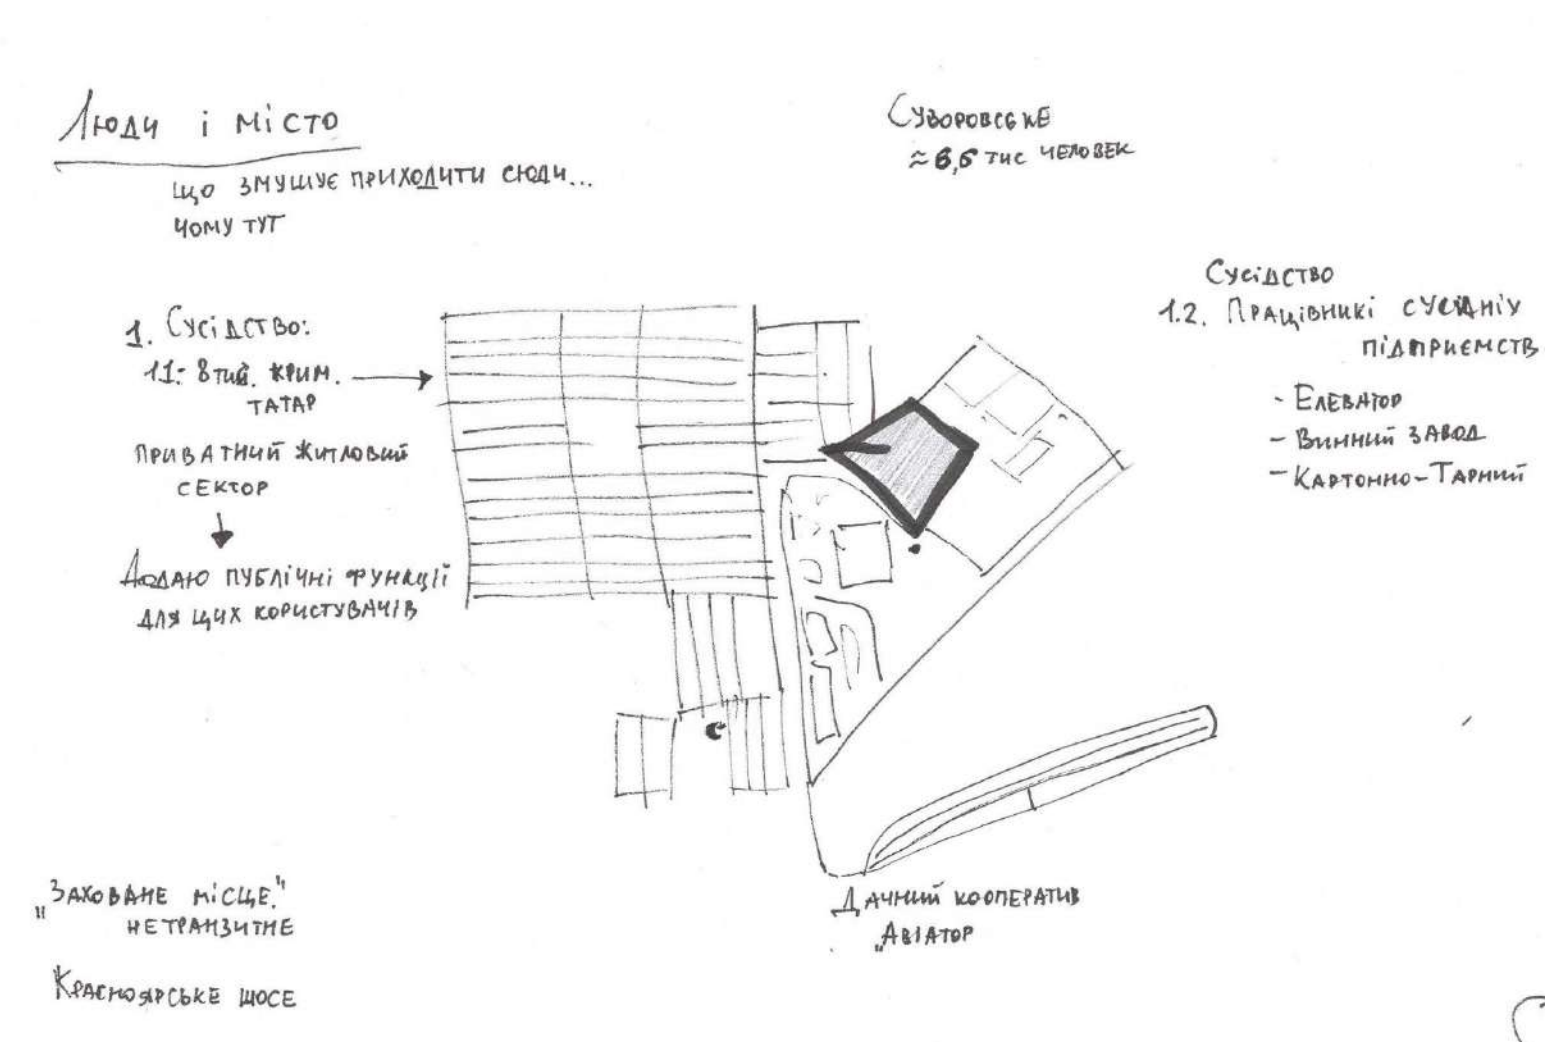 Люди і місто
що змушує приходити сюди...
чому тут
Суворовське
≈ 6,5 тис человек
1. Сусідство:
1.1: 8 тис. крим.
татар
приватний житловий
сектор
Додаю публічні функції
для цих користувачів
Сусідство
1.2. Працівникі сусідніх
підприємств
- Елеватор
- Винний завод
- Картонно-Тарний
„Заховане місце."
нетранзитне
Красноярське шосе
Дачний кооператив
„Авіатор